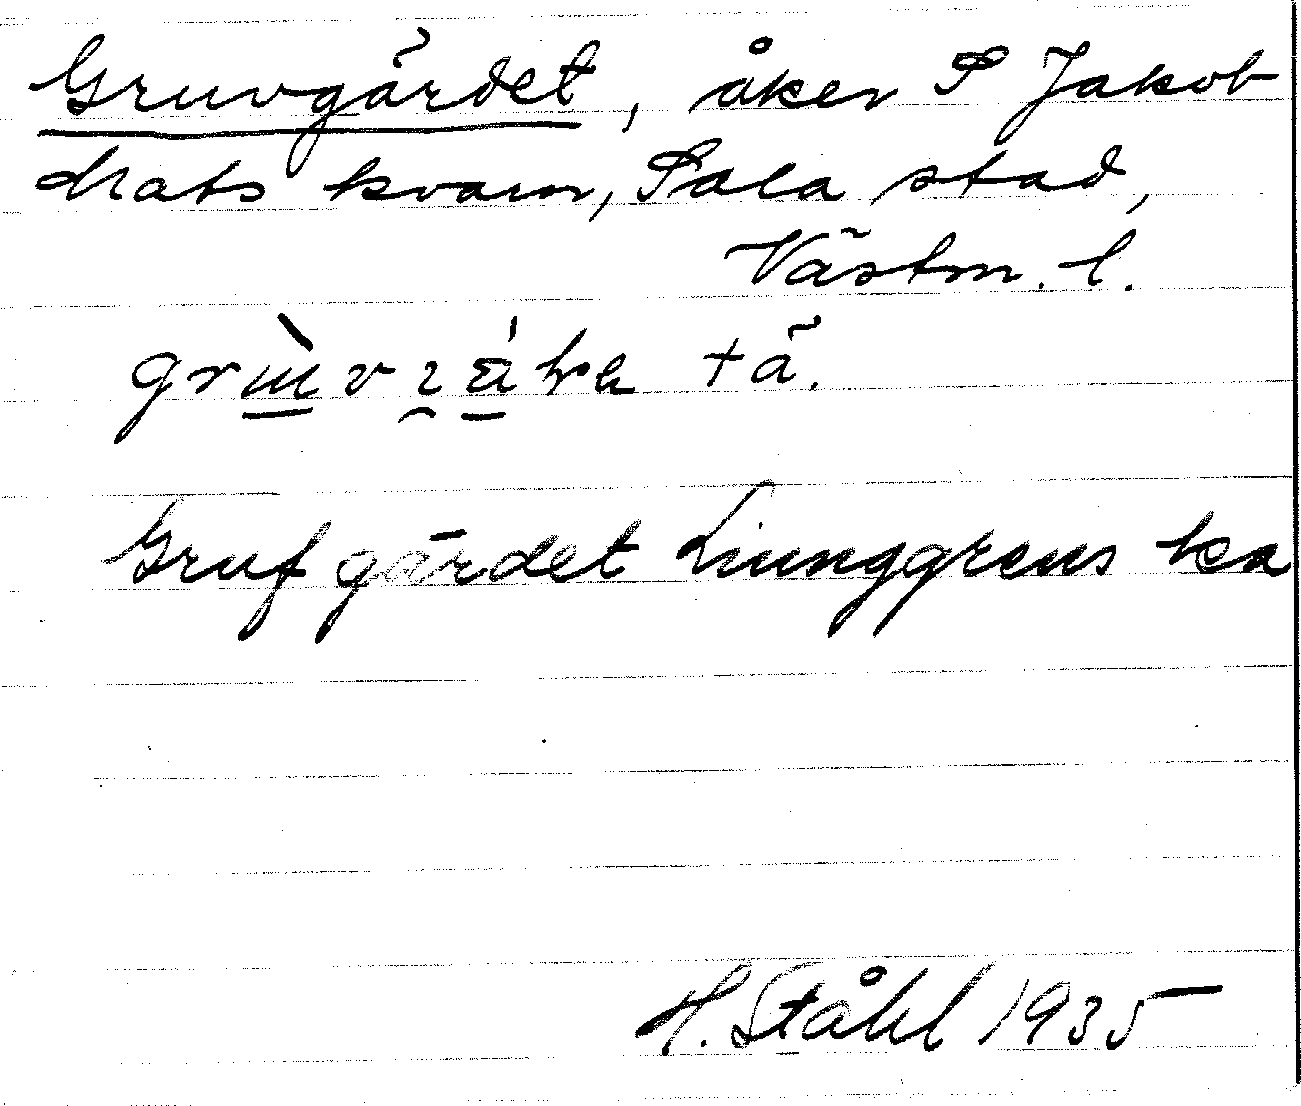 Gruvgärdet, åker S Jakob
Mats kvarn, Sala stad,
Västm. l.
tä.
Grufgärdet Liunggrens ka
H. Ståhl 1935